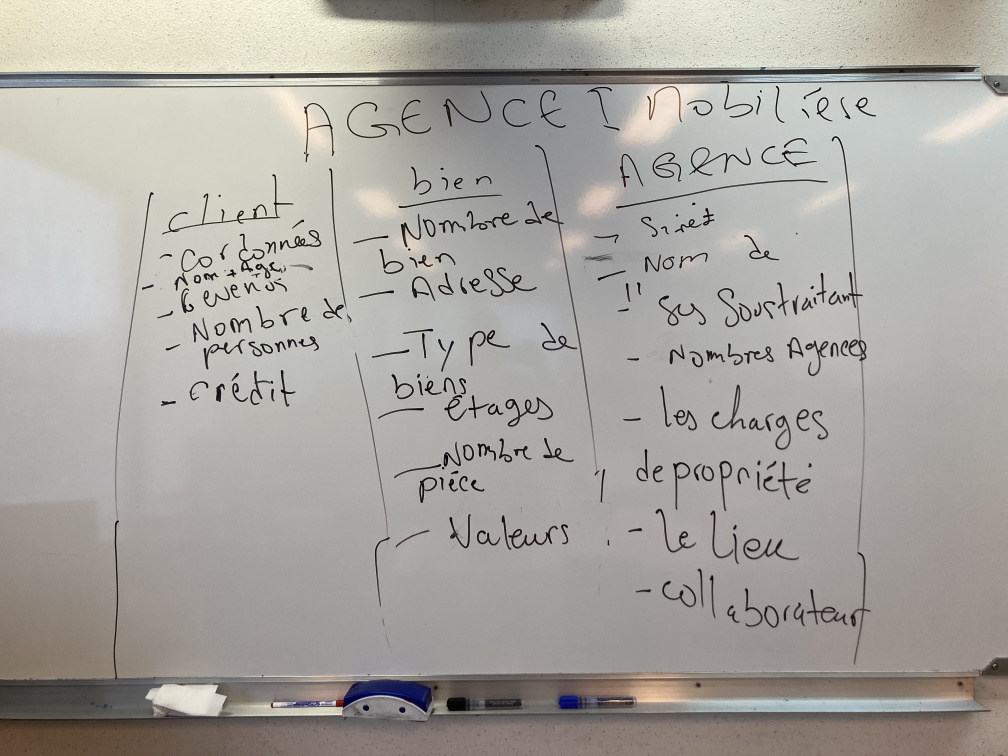 AGENCE Immobilière
client
- Cordonnées
- Nom + Age
- Revenus
- Nombre de
personnes
- crédit
bien
- Nombre de
bien
- Adresse
- Type de
biens
- étages
- Nombre de
pièce
- Valeurs
AGENCE
- Siret
- Nom de
- " Ses Soustraitant
- Nombres Agences
- les charges
de propriété
- Le Lieu
- collaborateur